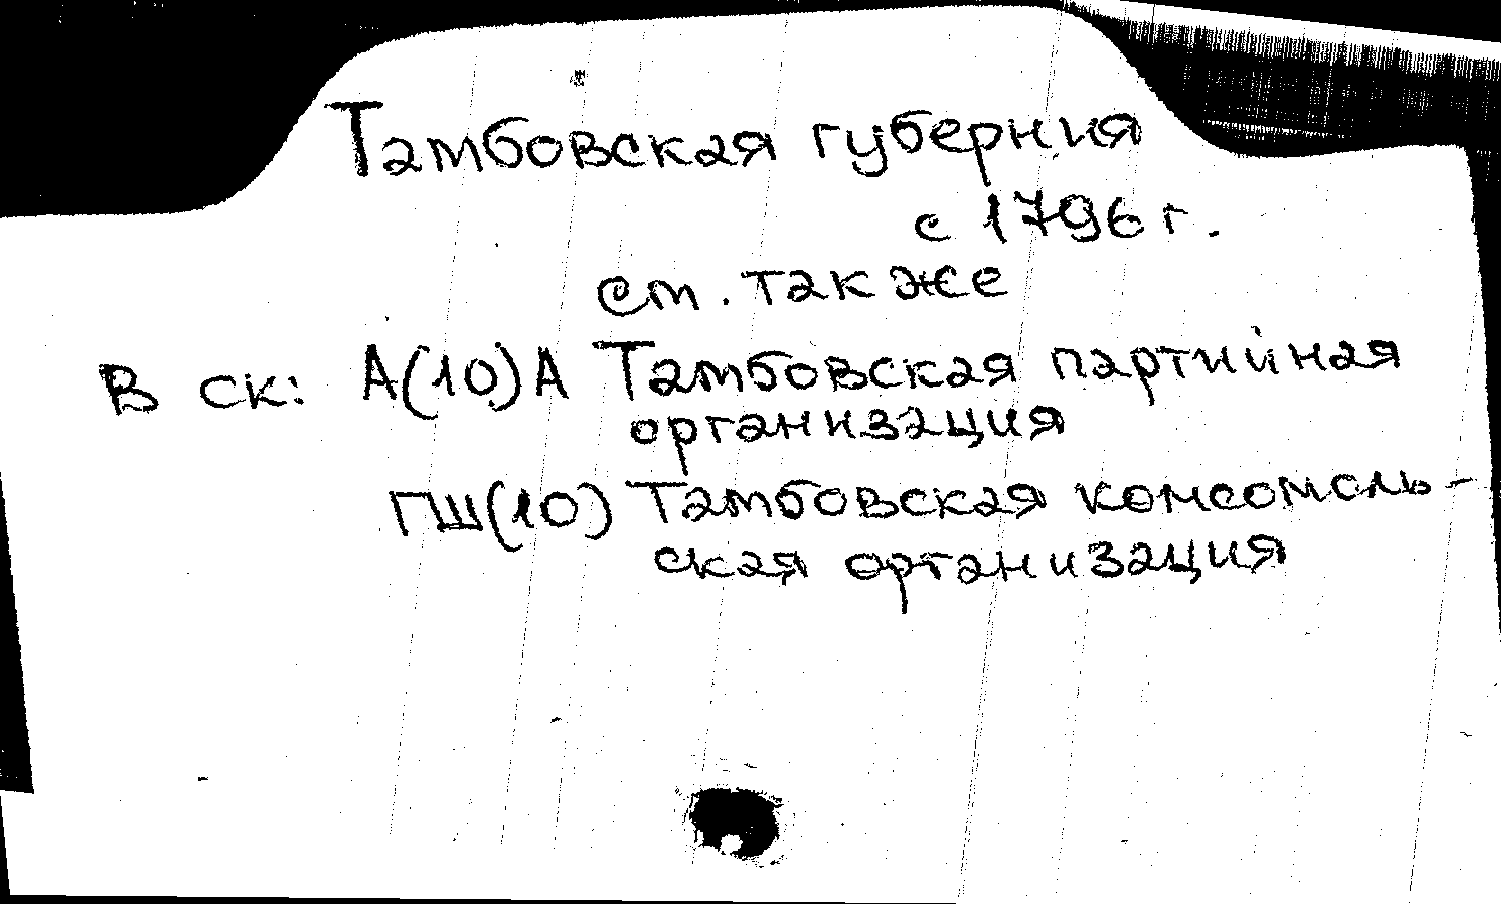 Тамбовская губерния
с 1796 г.
см. также
В ск: А(10)А Тамбовская партийная
организация
ПШ(10) Тамбовская комсомоль-
ская организация